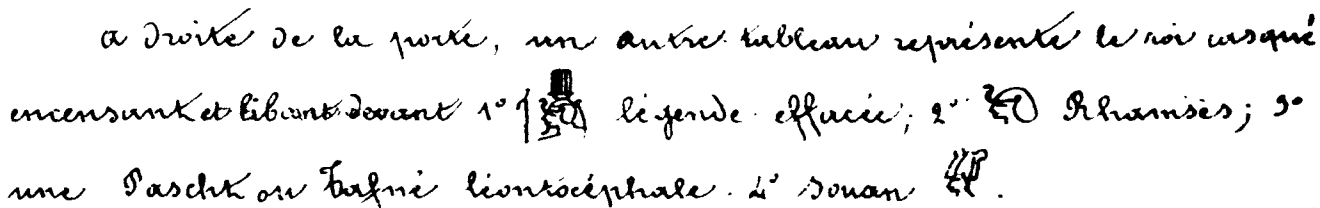 a droite de la porte, un autre tableau représente le roi casqué
encensant et libant devant 1° légende effacée; 2° Rhamsès; 3°
une Pascht ou Tafné léontocéphale. 4° Souan .